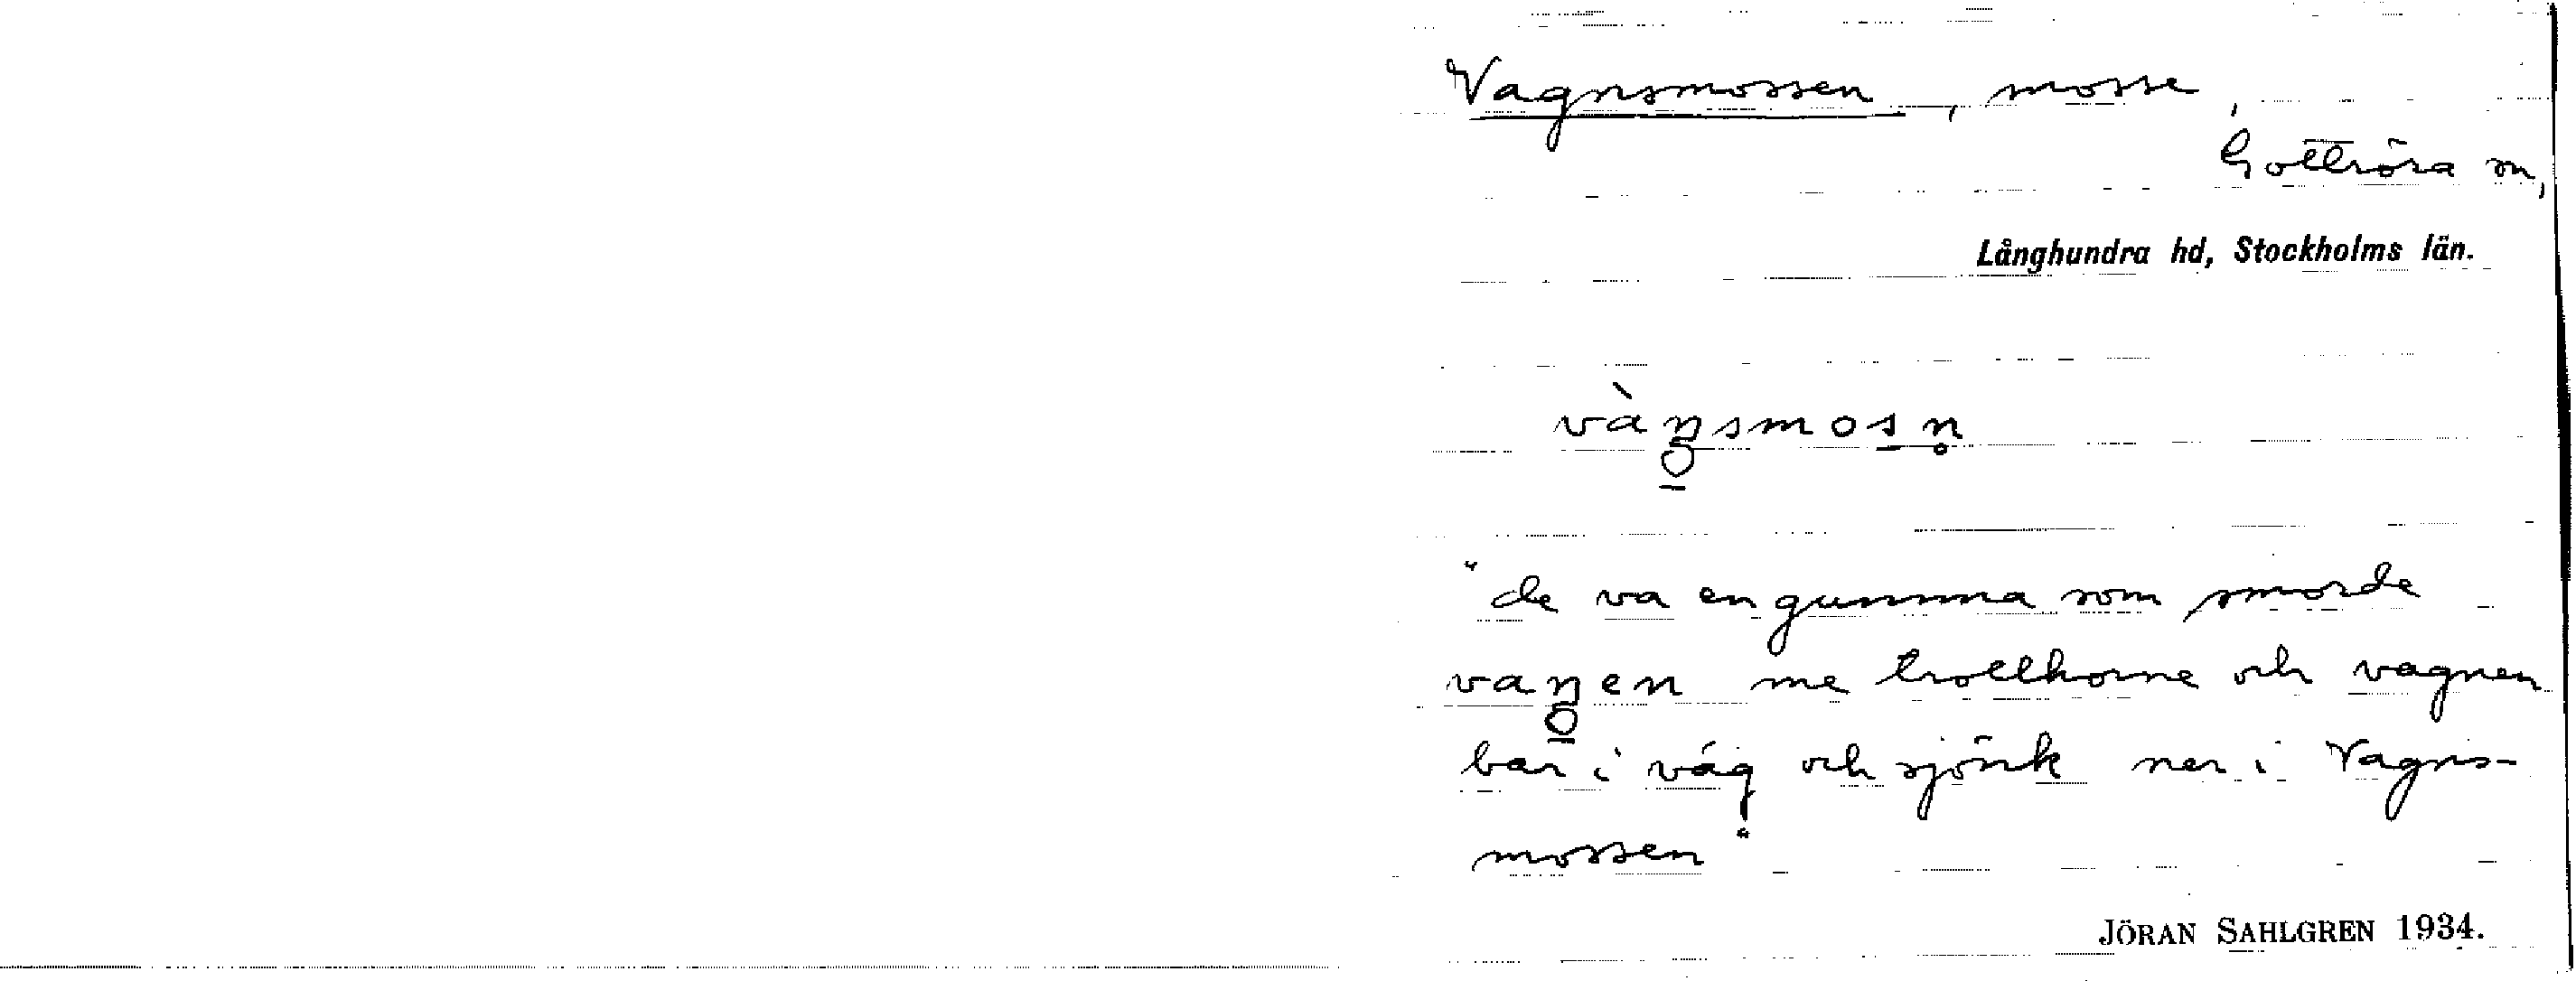 Vagnsmossen, mosse,
Gottröra sn,
Långhundra hd, Stockholms län.
vàŋsmosn̥
"de va en gumma som smorde
vaŋen me trollhorne och vagnen
bar i väg och sjönk ner i Vagns-
mossen"
JÖRAN SAHLGREN 1934.